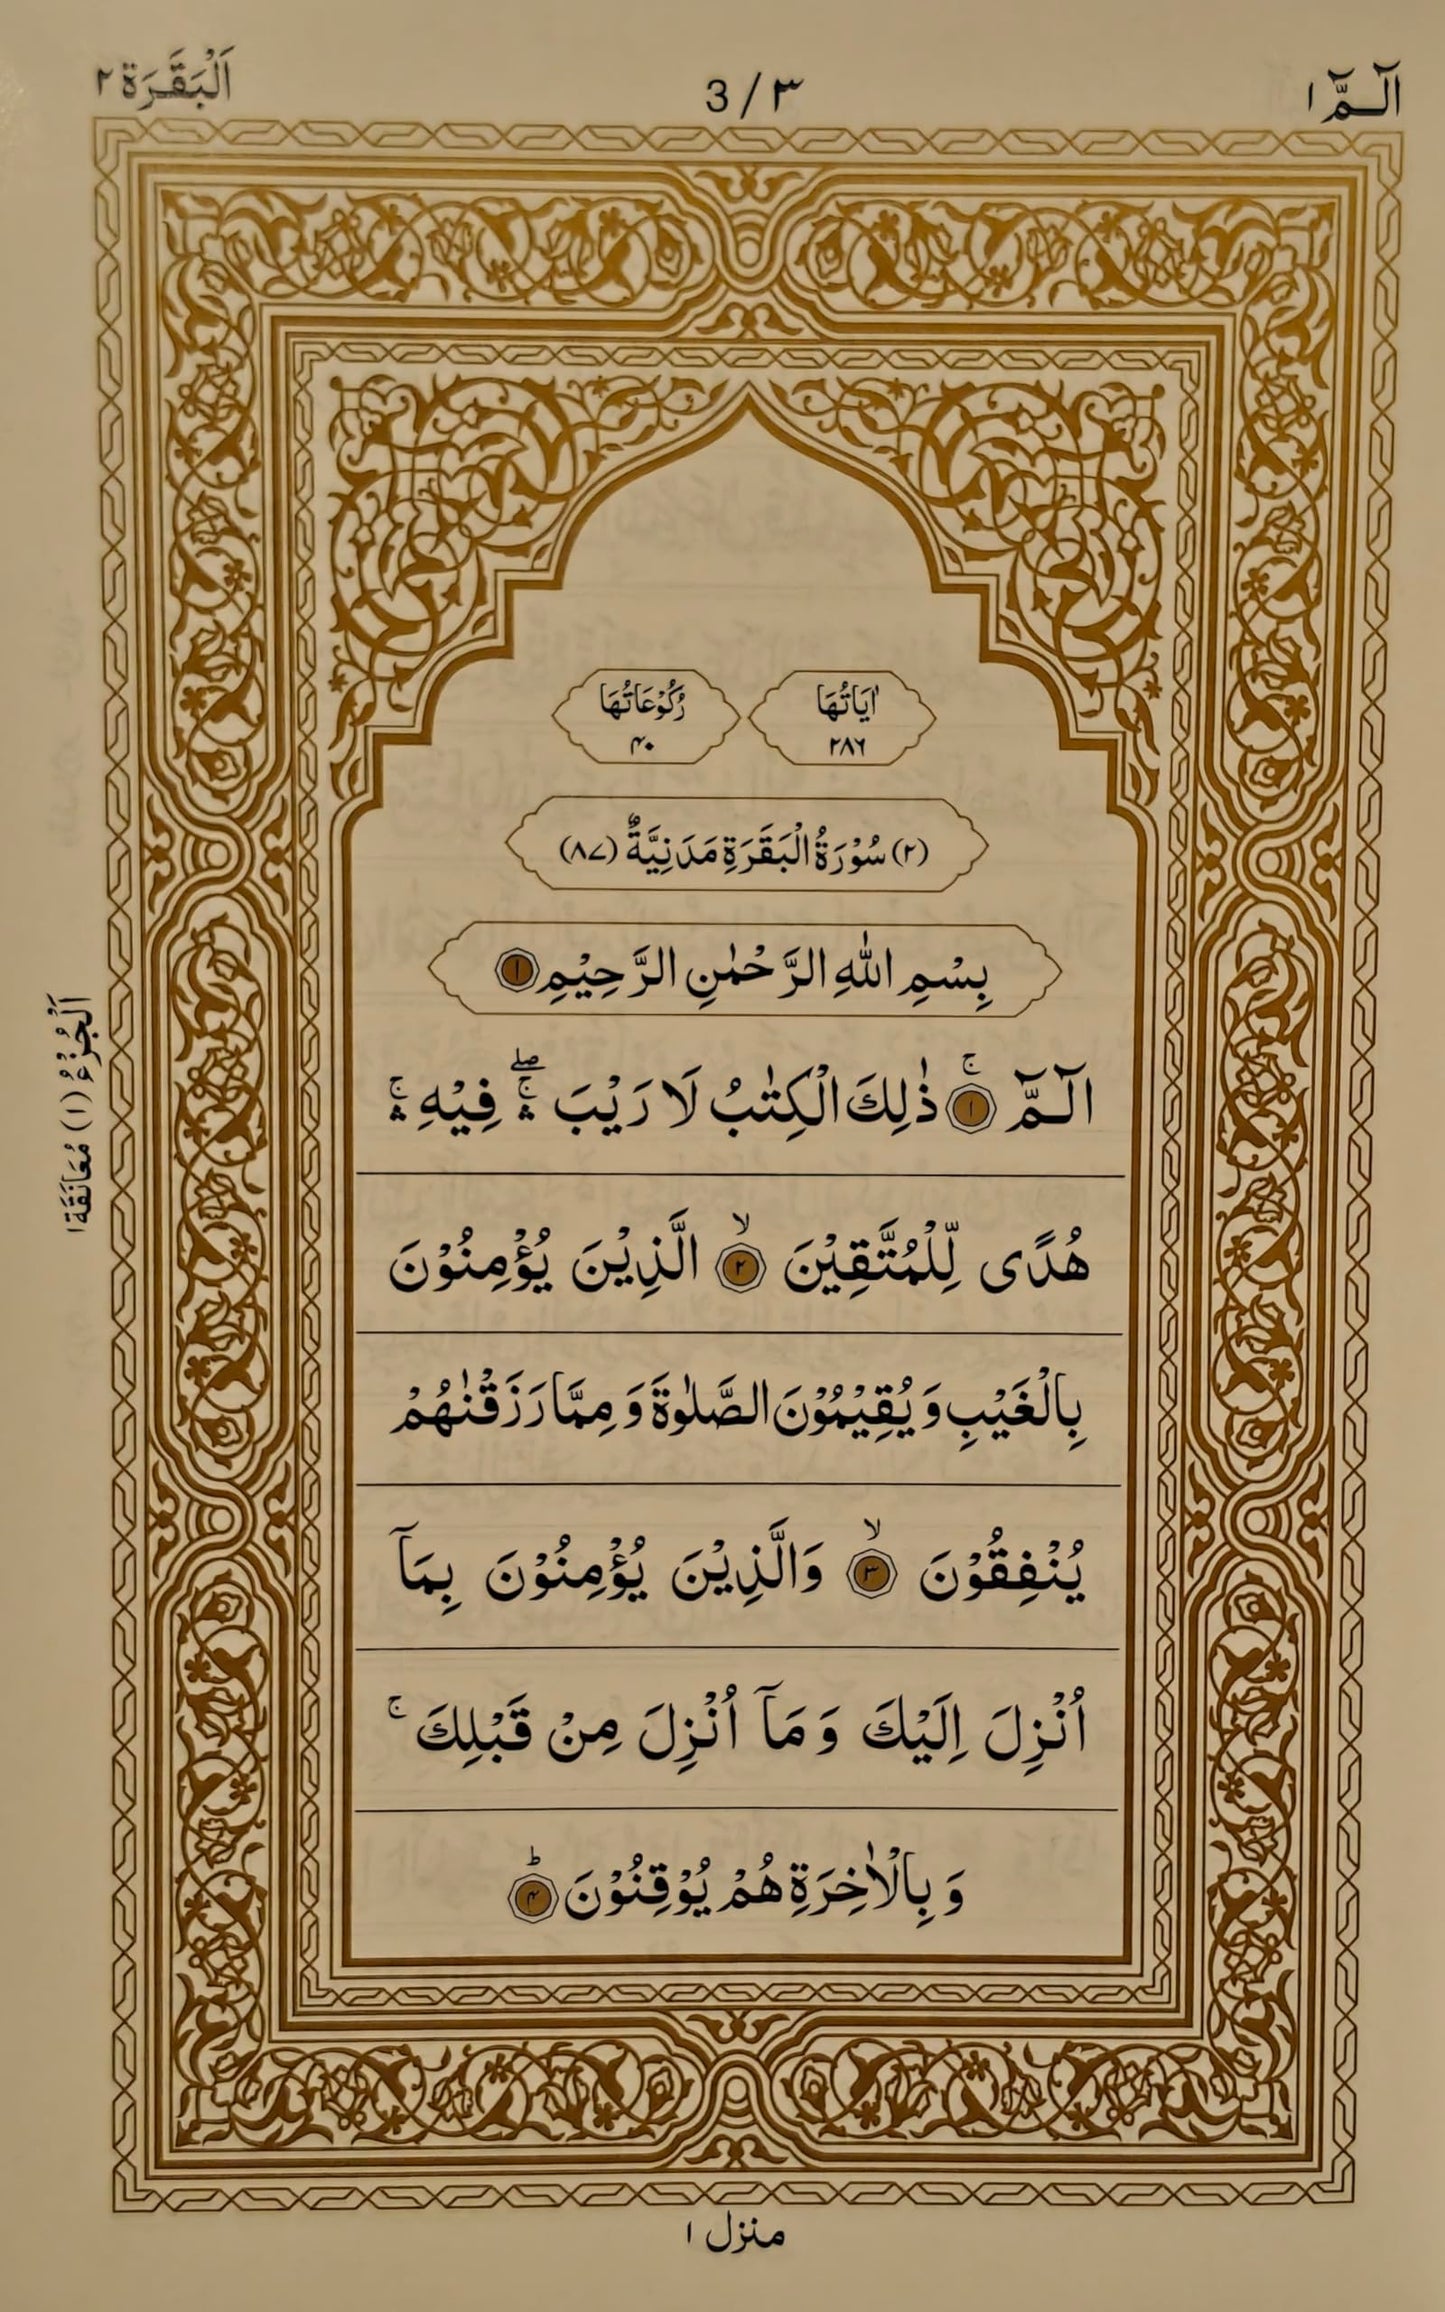 الٓـمّٓ ١
3 / ٣
اَلْبَقَرَة ٢
اٰيَاتُهَا
٢٨٦
رُكُوْعَاتُهَا
۴۰
(٢) سُوْرَةُ الْبَقَرَةِ مَدَنِيَّةٌ (٨٧)
بِسْمِ اللّٰهِ الرَّحْمٰنِ الرَّحِيْمِ ١
الٓـمّٓ ۚ ١ ذٰلِكَ الْكِتٰبُ لَا رَيْبَ ۛۚ ۖ فِيْهِ ۛۚ
هُدًى لِّلْمُتَّقِيْنَ ۙ ٢ الَّذِيْنَ يُؤْمِنُوْنَ
بِالْغَيْبِ وَيُقِيْمُوْنَ الصَّلٰوةَ وَمِمَّا رَزَقْنٰهُمْ
يُنْفِقُوْنَ ۙ ٣ وَالَّذِيْنَ يُؤْمِنُوْنَ بِمَآ
اُنْزِلَ اِلَيْكَ وَمَآ اُنْزِلَ مِنْ قَبْلِكَ ۚ
وَبِالْاٰخِرَةِ هُمْ يُوْقِنُوْنَ ؕ ۴
اَلْجُزْءُ (١) مُعَانَقَة ١
منزل ١